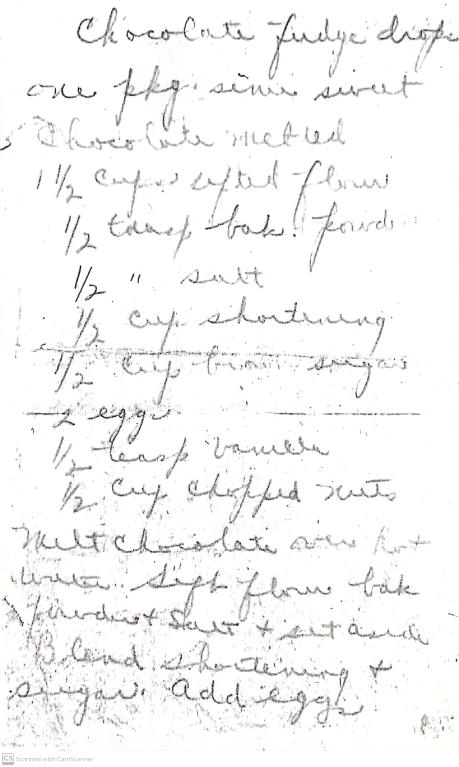 Chocolate fudge drops
one pkg. simi sweet
Chocolate melted
1 1/2 cups sifted flour
1/2 teasp bak. powd
1/2 " salt
1/2 cup shortening
1/2 cup brown sugar
2 eggs
1/2 teasp vanilla
1/2 cup chopped nuts
Melt chocolate over hot
water. Sift flour bak
powder + salt + set aside
Blend shortening +
sugar. Add eggs
CS Scanned with CamScanner